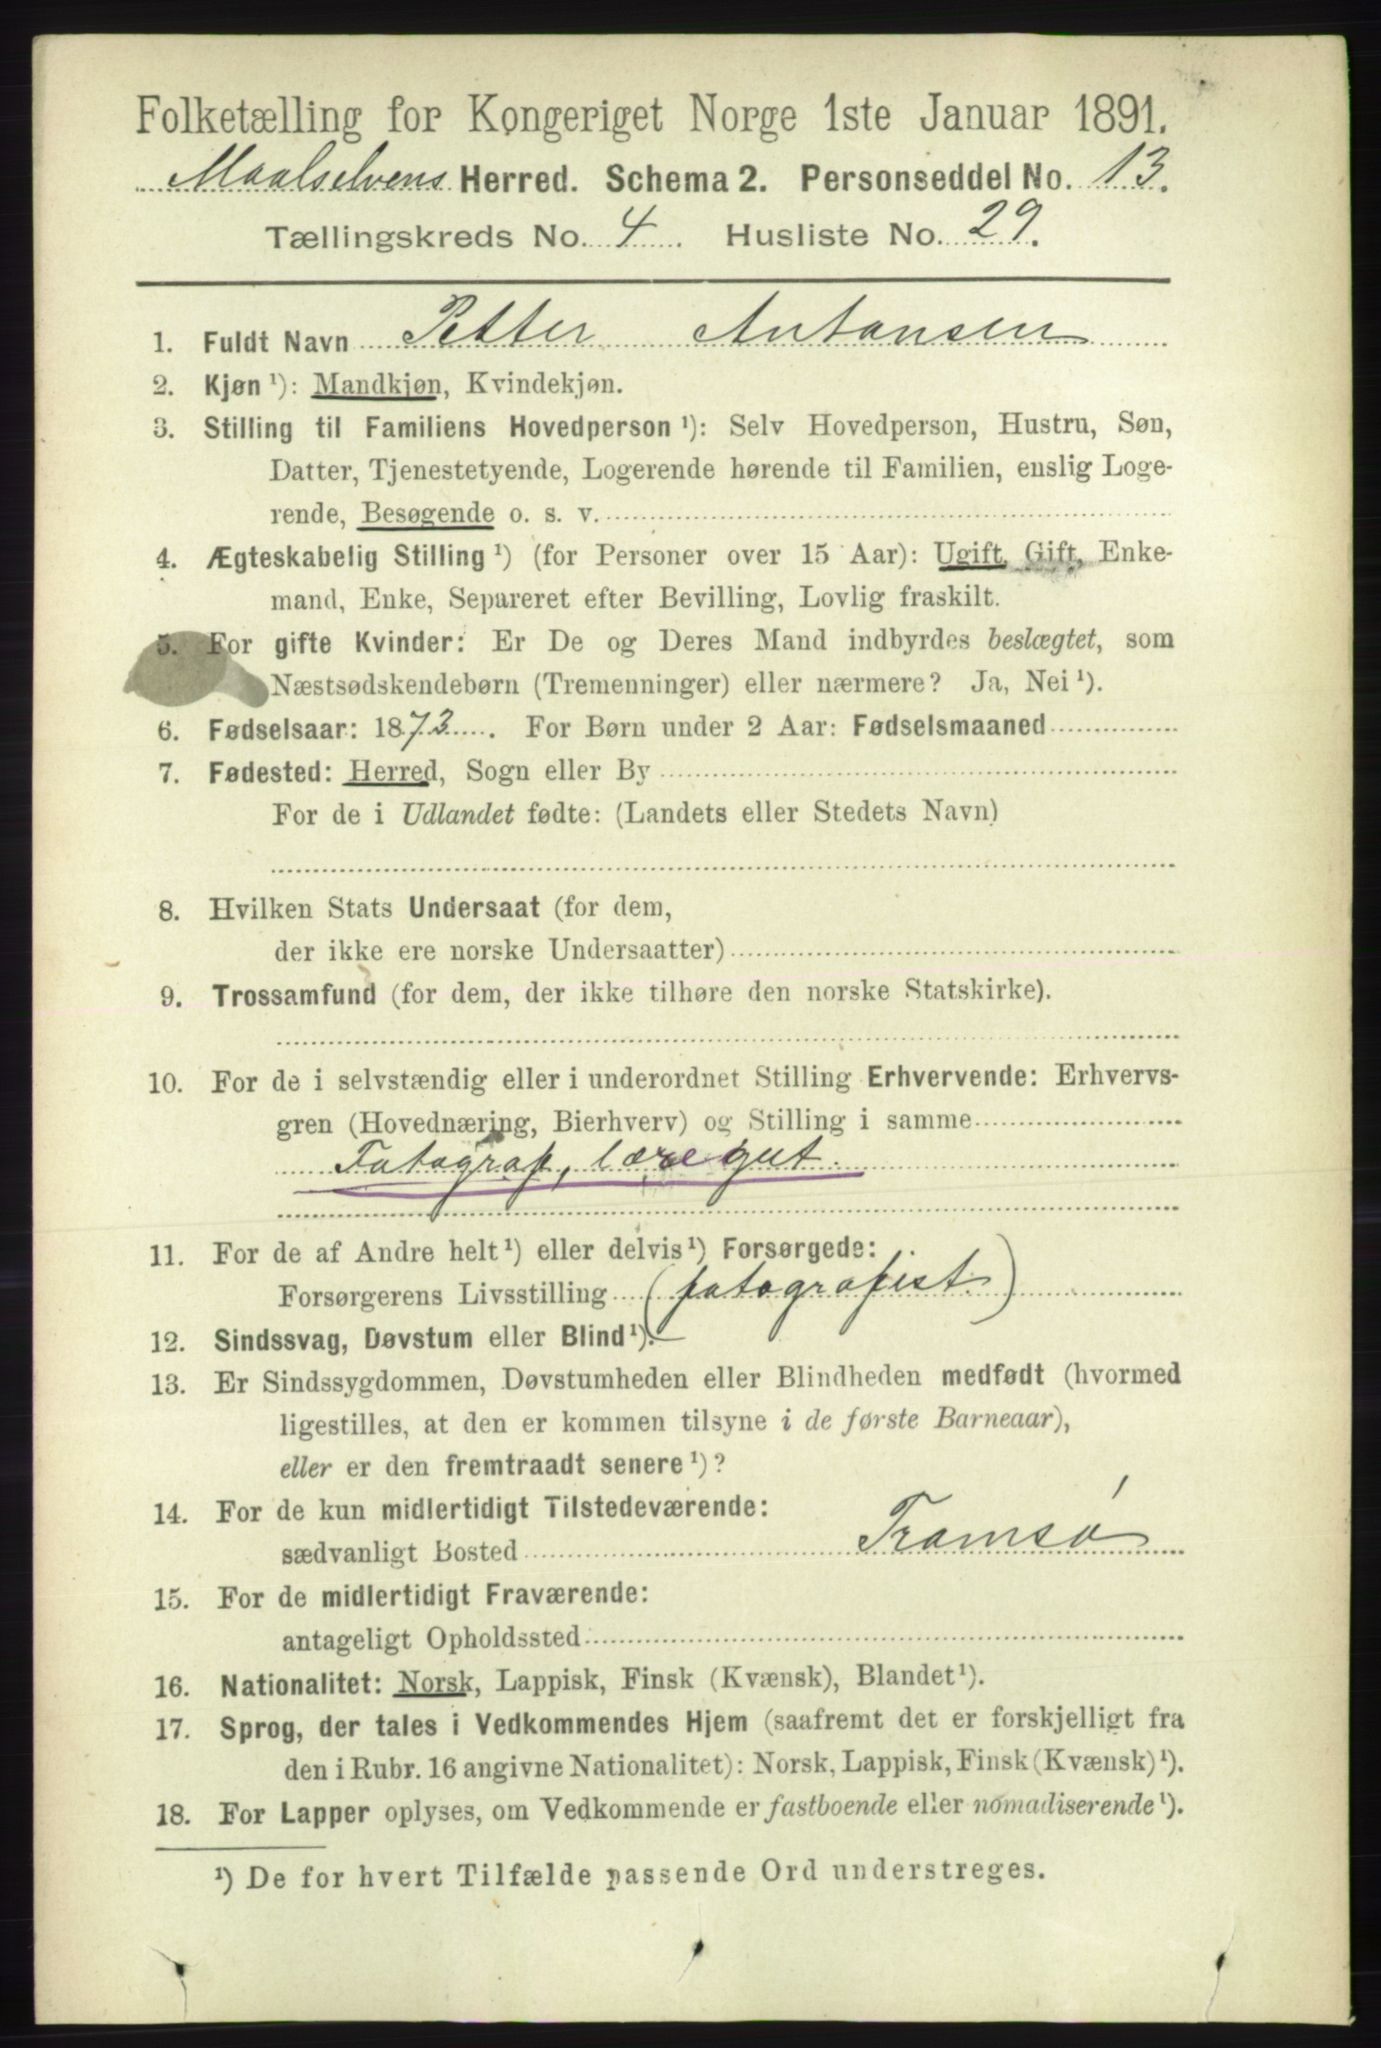 Folketælling for Kongeriget Norge 1ste Januar 1891.
Maalselvens Herred. Schema 2. Personseddel No. 13.
Tællingskreds No. 4. Husliste No. 29.
1. Fuldt Navn Petter Antonsen
2. Kjøn ¹): Mandkjøn, Kvindekjøn.
3. Stilling til Familiens Hovedperson ¹): Selv Hovedperson, Hustru, Søn,
Datter, Tjenestetyende, Logerende hørende til Familien, enslig Loge-
rende, Besøgende o. s. v.
4. Ægteskabelig Stilling ¹) (for Personer over 15 Aar): Ugift, Gift, Enke-
mand, Enke, Separeret efter Bevilling, Lovlig fraskilt.
5. For gifte Kvinder: Er De og Deres Mand indbyrdes beslægtet, som
Næstsødskendebørn (Tremenninger) eller nærmere? Ja, Nei ¹).
6. Fødselsaar: 1873. For Børn under 2 Aar: Fødselsmaaned
7. Fødested: Herred, Sogn eller By
For de i Udlandet fødte: (Landets eller Stedets Navn)
8. Hvilken Stats Undersaat (for dem,
der ikke ere norske Undersaatter)
9. Trossamfund (for dem, der ikke tilhøre den norske Statskirke).
10. For de i selvstændig eller i underordnet Stilling Erhvervende: Erhvervs-
gren (Hovednæring, Bierhverv) og Stilling i samme
Fotograf, læregut.
11. For de af Andre helt ¹) eller delvis ¹) Forsørgede:
Forsørgerens Livsstilling (fotografist.)
12. Sindssvag, Døvstum eller Blind ¹).
13. Er Sindssygdommen, Døvstumheden eller Blindheden medfødt (hvormed
ligestilles, at den er kommen tilsyne i de første Barneaar),
eller er den fremtraadt senere ¹)?
14. For de kun midlertidigt Tilstedeværende:
sædvanligt Bosted Tromsø
15. For de midlertidigt Fraværende:
antageligt Opholdssted
16. Nationalitet: Norsk, Lappisk, Finsk (Kvænsk), Blandet ¹).
17. Sprog, der tales i Vedkommendes Hjem (saafremt det er forskjelligt fra
den i Rubr. 16 angivne Nationalitet): Norsk, Lappisk, Finsk (Kvænsk) ¹).
18. For Lapper oplyses, om Vedkommende er fastboende eller nomadiserende ¹).
¹) De for hvert Tilfælde passende Ord understreges.